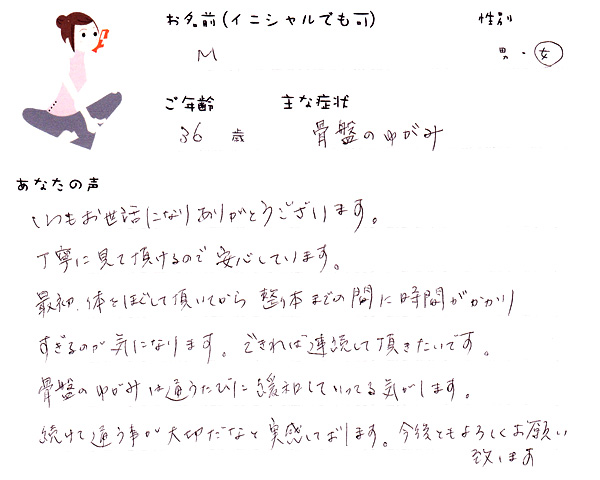 お名前(イニシャルでも可)
性別
M
男・女
ご年齢
主な症状
36歳
骨盤のゆがみ
あなたの声
いつもお世話になりありがとうございます。
丁寧に見て頂けるので安心しています。
最初、体をほぐして頂いてから整体までの間に時間がかかり
すぎるのが気になります。できれば連続して頂きたいです。
骨盤のゆがみは通うたびに緩和していってる気がします。
続けて通う事が大切だなと実感しております。今後ともよろしくお願い
致します